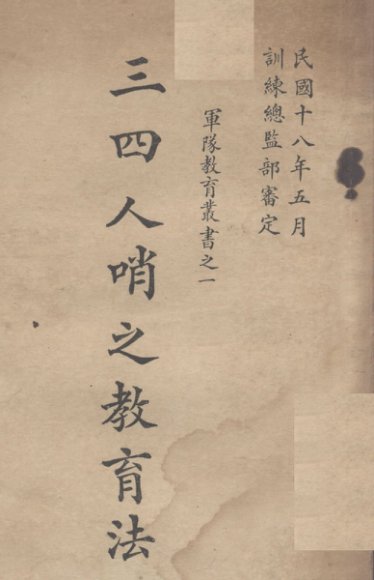 民國十八年五月
訓練總監部審定
軍隊教育叢書之一
三四人哨之教育法